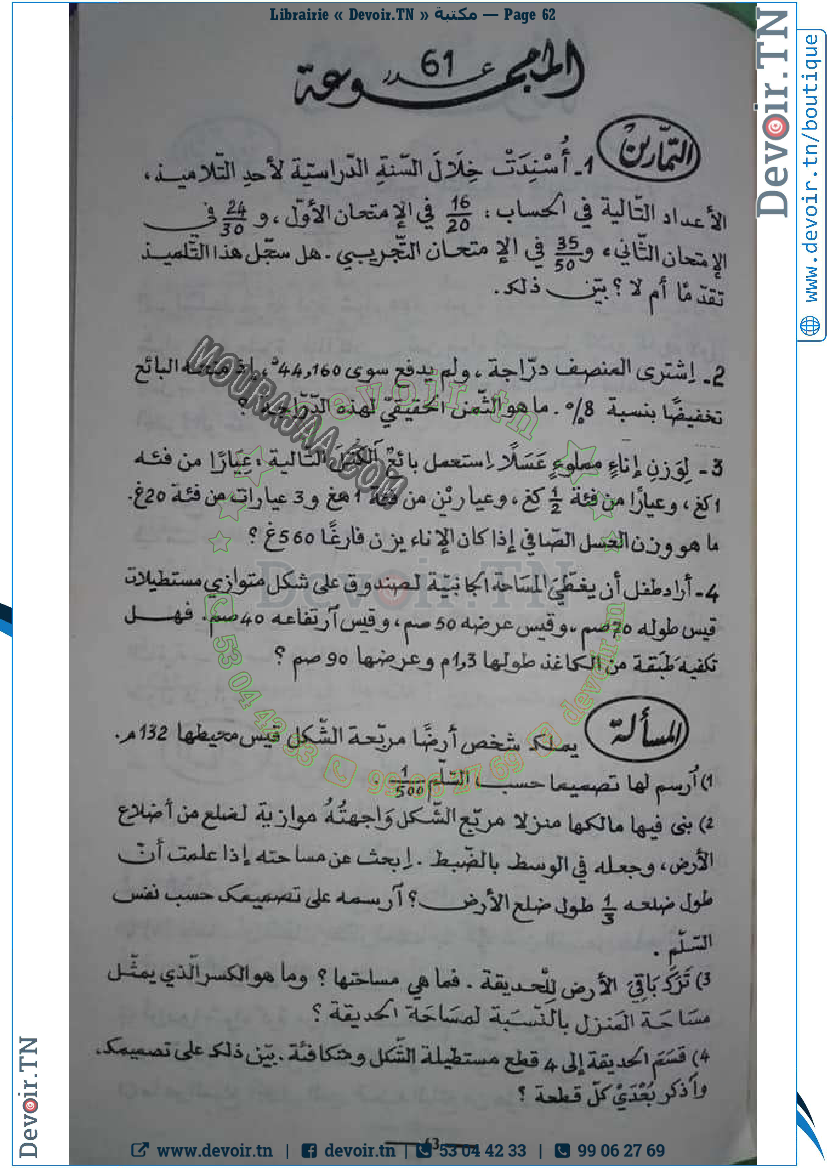 Librairie « Devoir.TN » مكتبة — Page 62
المجموعة عدد 61
التمّارين
1- أُسْنِدَتْ خِلَالَ السّنةِ الدّراستية لأحدِ التّلاميذ،
الأعداد التّالية في الحساب: 16/20 في الإمتحان الأوّل، و 24/30 في
الإمتحان الثّاني، و 35/50 في الإمتحان التّجريبي. هل سجّل هذا التّلميذ
تقدّمًا أم لا؟ بيّن ذلك.
2- اِشترى المنصف درّاجة، ولم يدفع سوى 44,160د، إذ منحه البائع
تخفيضًا بنسبة 8%. ما هو الثّمن الحقيقيّ لهذه الدّرّاجة؟
3- لِوَزنِ إناءٍ مملوءٍ عَسَلًا اِستعمل بائعٌ الكُتَلَ التّالية: عِيَارًا من فئة
1 كغ، وعيارًا من فئة 1/2 كغ، وعياريْن من فئة 1 هغ و 3 عيارات من فئة 20غ.
ما هو وزن العسل الصّافي إذا كان الإناء يزن فارغًا 560غ؟
4- أراد طفل أن يغطّيَ المسَاحة الجَانبيّة لصندوق على شكل متوازي مستطيلات
قيس طوله 70صم، وقيس عرضه 50صم، وقيس آرتفاعه 40صم. فهل
تكفيه طَبَقة من الكاغذ طولها 1,3م وعرضها 90 صم؟
المسألة
يملك شخص أرضًا مربّعة الشّكل قيس محيطها 132م.
1) اُرسم لها تصميما حسب السّلّم 1/500.
2) بنى فيها مالكها منزلا مربّع الشّكل وَاجهتُهُ موازية لضلع من أضلاع
الأرض، وجعله في الوسط بالضّبط. اِبحث عن مساحته إذا علمت أنّ
طول ضلعه 1/3 طول ضلع الأرض؟ آرسمه على تصميمك حسب نفس
السّلّم.
3) تَرَكَ بَاقِيَ الأرض لِلْحديقة. فما هي مساحتها؟ وما هو الكسر الّذي يمثّل
مسَاحَة المنزل بالنّسبة لمسَاحَة الحديقة؟
4) قسّم الحديقة إلى 4 قطع مستطيلة الشّكل ومتكافئة. بيّن ذلك على تصميمك.
واَذكر بُعْدَيْ كلّ قطعة؟
63
MOURAJAA.COM
devoir.tn
Devoir.TN
53 04 42 33
99 06 27 69
devoir.tn
Devoir.TN
www.devoir.tn/boutique
Devoir.TN
www.devoir.tn | devoir.tn | 53 04 42 33 | 99 06 27 69